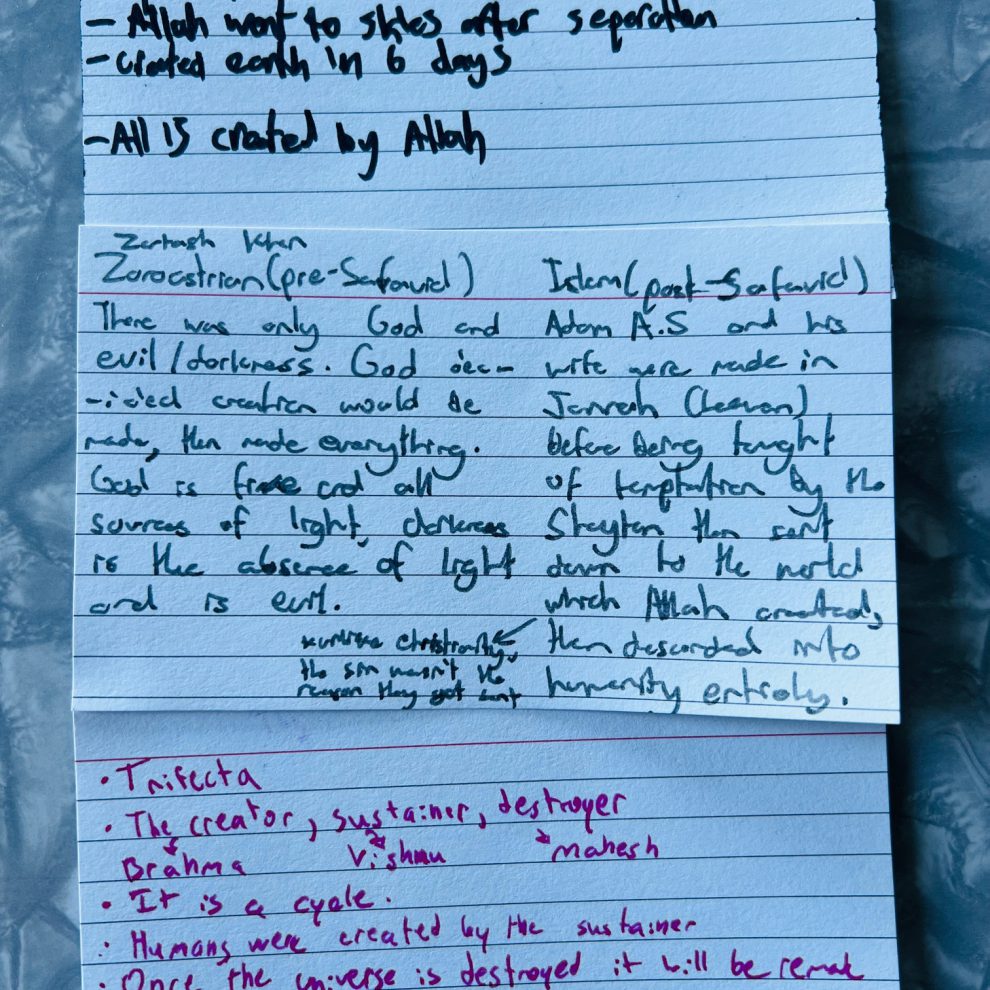 - Allah went to skies after separation
- created earth in 6 days
- All is created by Allah
Zartash Khan
Zoroastrian (pre-Safavid)
There was only God and
evil/darkness. God dec-
-ided creation would be
made, then made everything.
God is fire and all
sources of light, darkness
is the absence of light
and is evil.
Islam (post-Safavid)
Adam A.S and his
wife were made in
Jannah (heaven)
before being taught
of temptation by the
Shaytan then sent
down to the world
which Allah created,
then descended into
humanity entirely.
*unlike christianity,
the sin wasn't the
reason they got sent
• Trifecta
• The creator, sustainer, destroyer
Brahma Vishnu mahesh
• It is a cycle.
• Humans were created by the sustainer
• Once the universe is destroyed it will be remak